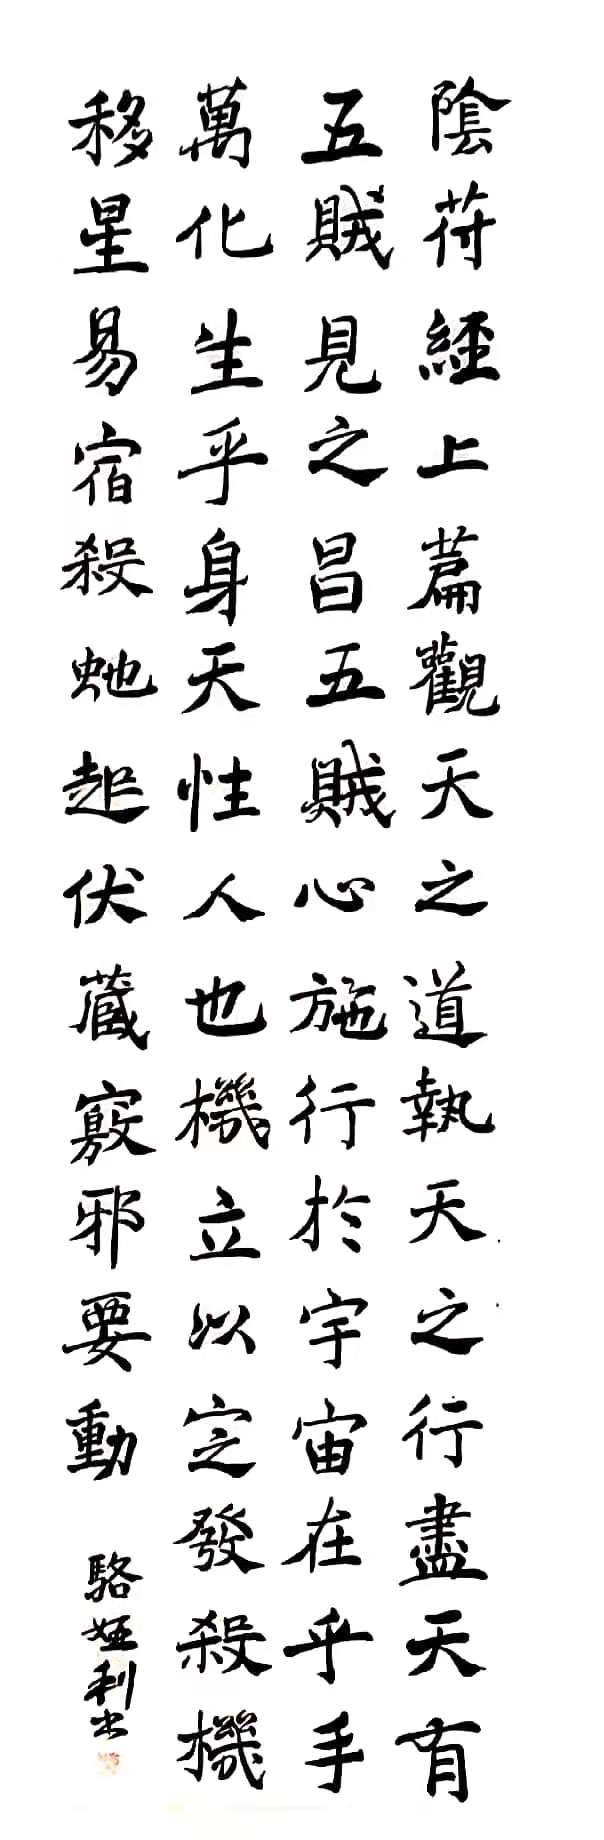 陰符經上篇觀天之道執天之行盡天有
五賊見之昌五賊心施行於宇宙在乎手
萬化生乎身天性人也機立以定發殺機
移星易宿殺虵起伏藏竅邪要動
駱姃利书